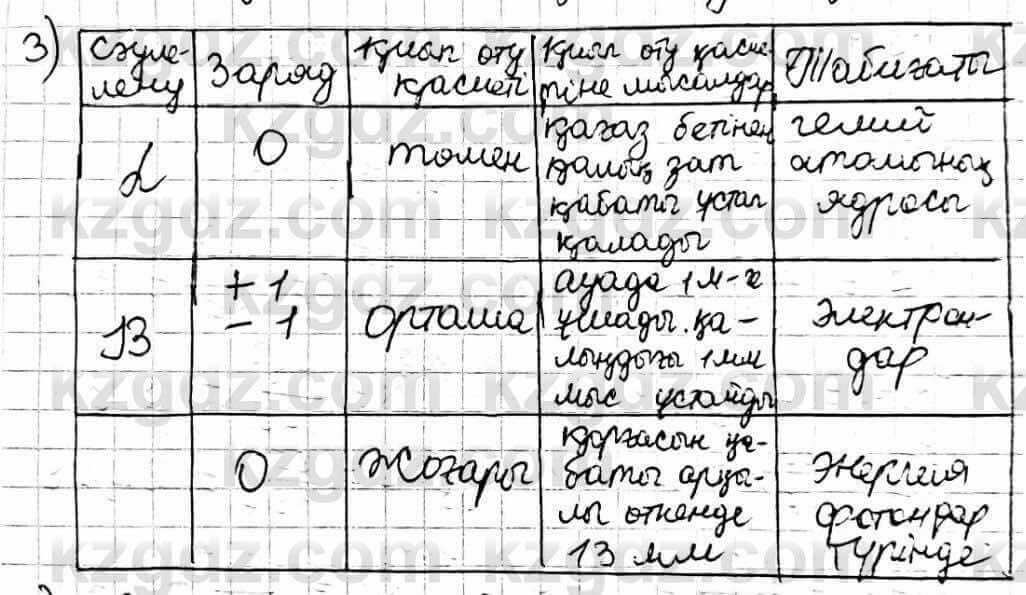 3)
Сәуле-
лену
Заряд
Қиып өту
қасиеті
Қиып өту қасие-
тіне мысалдар
Табиғаты
α
0
төмен
қағаз бетінен
қалың зат
қабаты ұстап
қалады
гелий
атомының
ядросы
β
+1
-1
Орташа
ауада 1м-ге
ұшады. қа-
лыңдығы 1мм
мыс ұстайды
Электрон-
дар
0
Жоғары
Қорғасын қа-
баты арқы-
лы өткенде
13 мм
Энергия
фотондар
түрінде
kzgdz.com